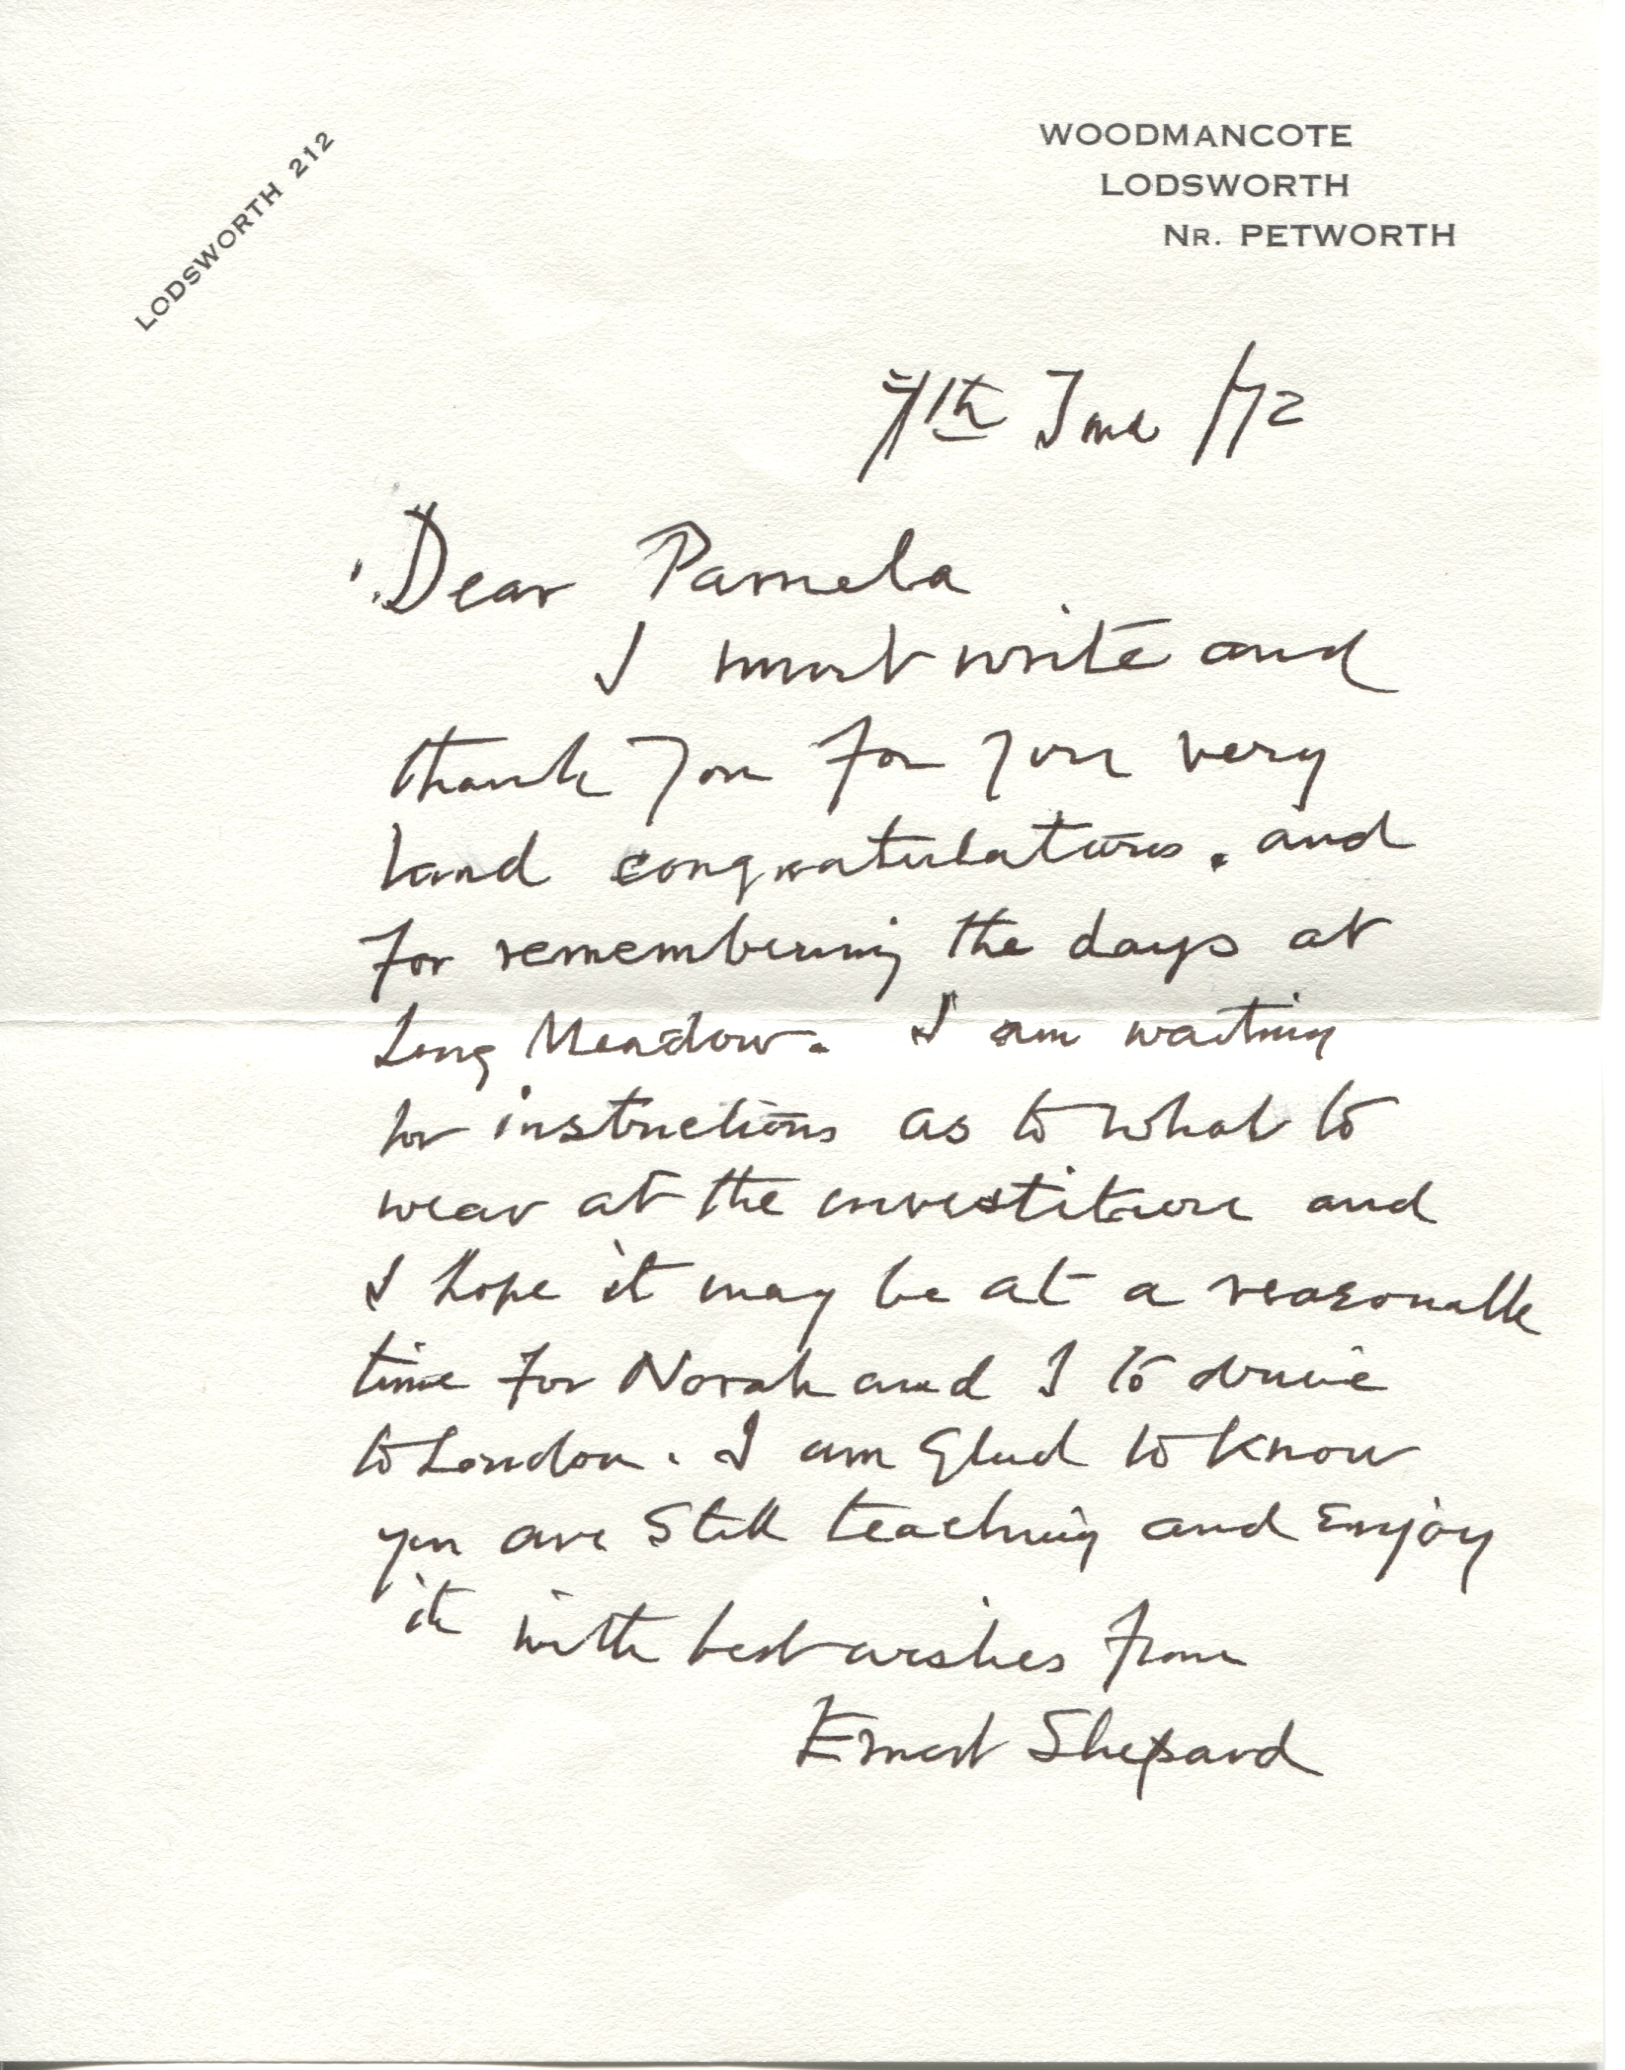 LODSWORTH 212
WOODMANCOTE
LODSWORTH
NR. PETWORTH
7th June /72
Dear Pamela
I must write and
thank you for your very
kind congratulations. and
for remembering the days at
Long Meadow. I am waiting
for instructions as to what to
wear at the investiture and
I hope it may be at a reasonable
time for Norah and I to drive
to London. I am Glad to know
you are still teaching and Enjoy
it with best wishes from
Ernest Shepard